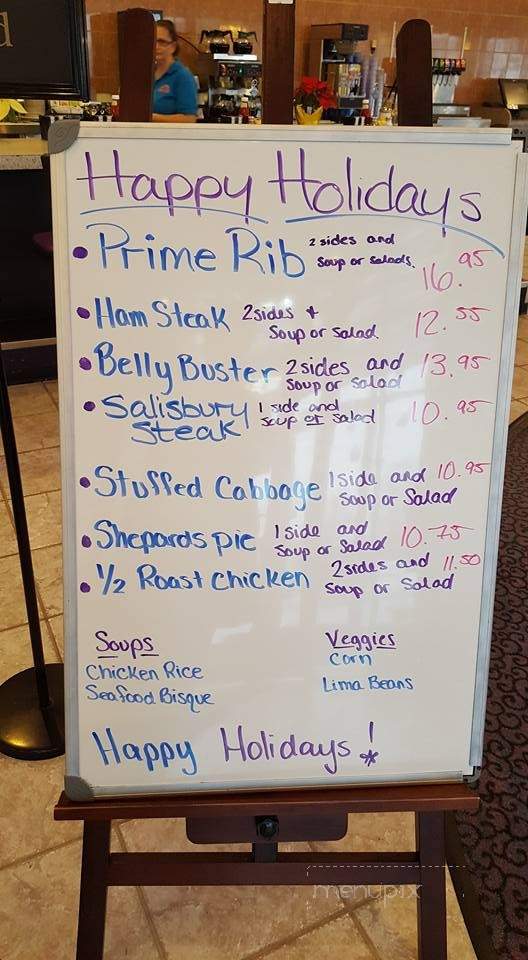 d
Happy Holidays
• Prime Rib 2 sides and
soup or salads. 16.95
• Ham Steak 2 sides +
Soup or salad 12.55
• Belly Buster 2 sides and 13.95
soup or salad
• Salisbury 1 side and 10.95
Steak soup or salad
• Stuffed Cabbage 1 side and 10.95
Soup or Salad
• Shepards pie 1 side and 10.75
Soup or Salad
• 1/2 Roast chicken 2 sides and 11.50
soup or Salad
Soups
Chicken Rice
Seafood Bisque
Veggies
Corn
Lima Beans
Happy Holidays!
menupix